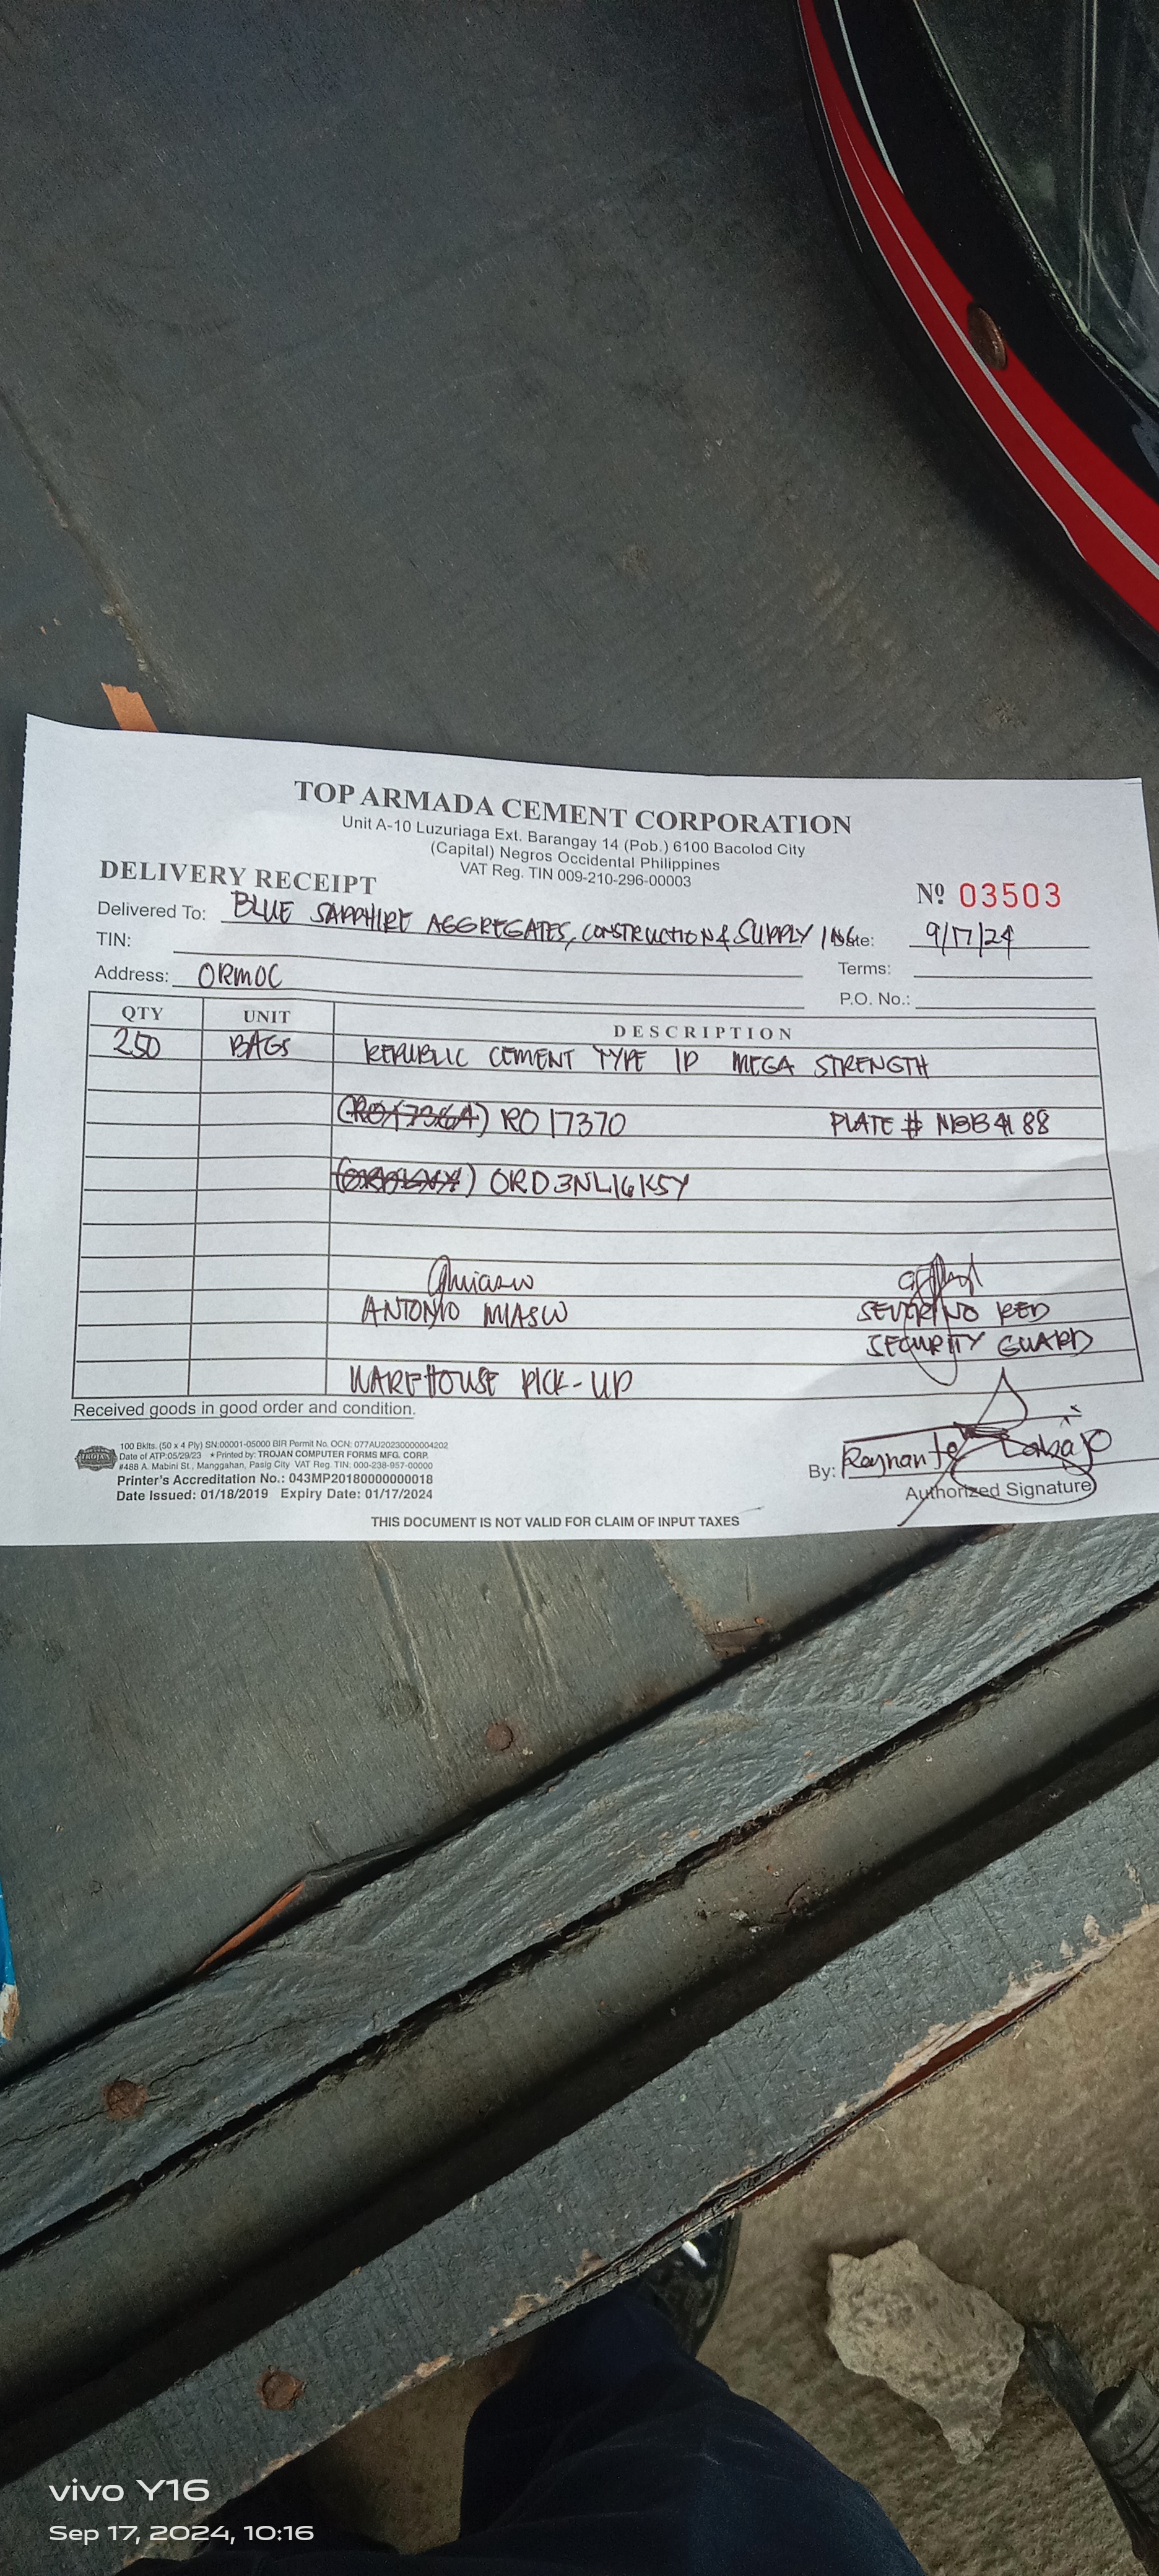 TOP ARMADA CEMENT CORPORATION
Unit A-10 Luzuriaga Ext. Barangay 14 (Pob.) 6100 Bacolod City
(Capital) Negros Occidental Philippines
VAT Reg. TIN 009-210-296-00003
DELIVERY RECEIPT
Nº 03503
Delivered To: BLUE SAPPHIRE AGGREGATES, CONSTRUCTION & SUPPLY INC Date: 9/17/24
TIN: Terms:
Address: ORMOC P.O. No.:
QTY UNIT DESCRIPTION
250 BAGS REPUBLIC CEMENT TYPE 1P MEGA STRENGTH
(RO17364) RO 17370 PLATE # NBB 4188
ORD3NL16K5Y
ANTONIO MIASCO SEVERINO RED
SECURITY GUARD
WAREHOUSE PICK-UP
Received goods in good order and condition.
100 Bklts. (50 x 4 Ply) SN:00001-05000 BIR Permit No. OCN: 077AU20230000004202
Date of ATP:05/29/23 • Printed by: TROJAN COMPUTER FORMS MFG. CORP.
#488 A. Mabini St., Manggahan, Pasig City VAT Reg. TIN: 000-238-957-00000
Printer's Accreditation No.: 043MP20180000000018
Date Issued: 01/18/2019 Expiry Date: 01/17/2024
By: Raynante Labajo
Authorized Signature
THIS DOCUMENT IS NOT VALID FOR CLAIM OF INPUT TAXES
vivo Y16
Sep 17, 2024, 10:16